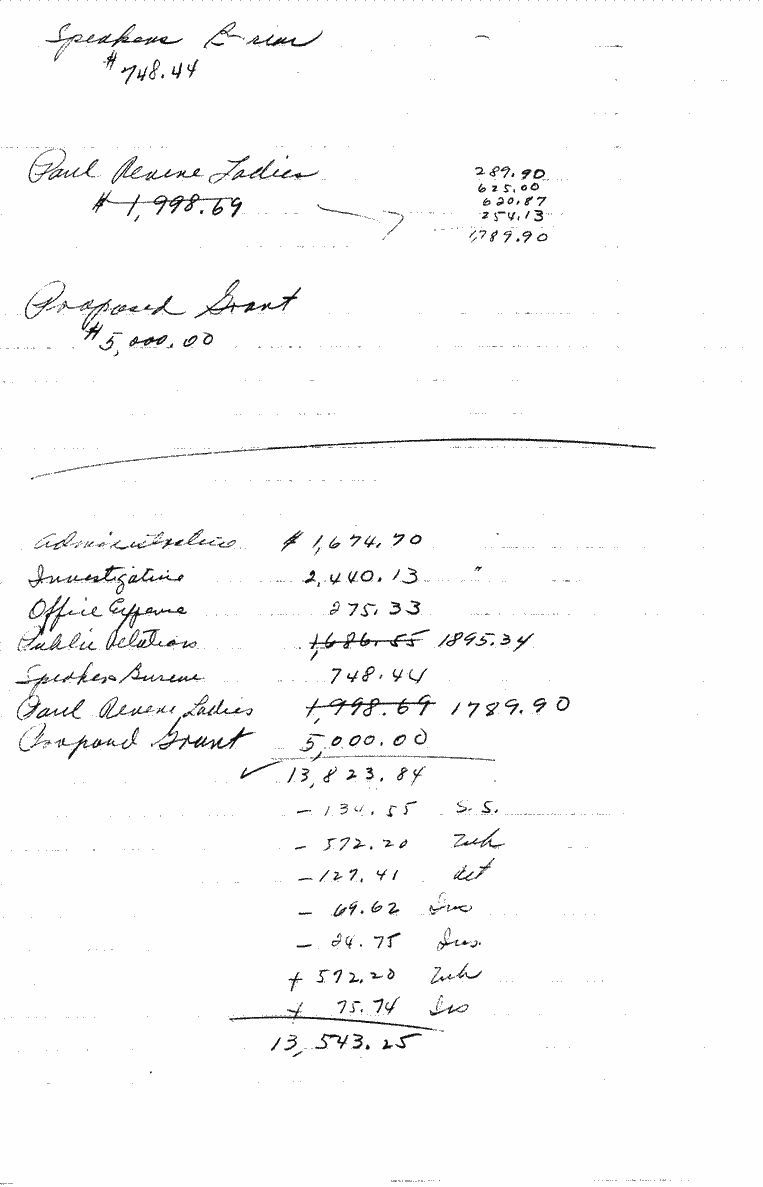 Speakers Bureau
$748.44
Paul Revere Ladies
$1,998.69
289.90
625.00
620.87
254.13
1,789.90
Proposed Grant
$5,000.00
Administrative $1,674.70
Investigative 2,440.13 "
Office Expense 275.33
Public Relations 1,686.55 1895.34
Speakers Bureau 748.44
Paul Revere Ladies 1,998.69 1789.90
Proposed Grant 5,000.00
✓ 13,823.84
- 134.55 S.S.
- 572.20
- 127.41
- 69.62
- 24.75 Ins.
+ 572.20
+ 75.74
13,543.25